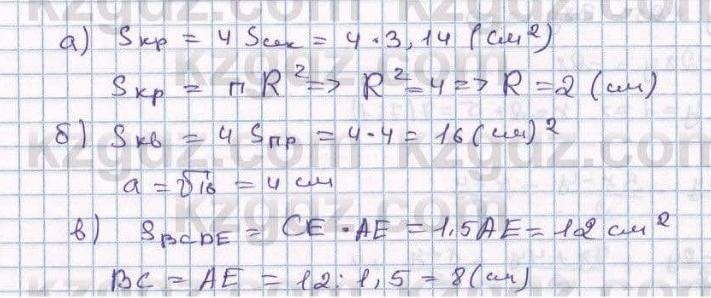 а) Sкр = 4 Sсек = 4 · 3,14 (см²)
Sкр = πR² => R² = 4 => R = 2 (см)
б) Sкв = 4 Sпр = 4 · 4 = 16 (см)²
a = √16 = 4 см
в) SBCDE = CE · AE = 1,5AE = 12 см²
BC = AE = 12 : 1,5 = 8 (см)
kzgdz.com